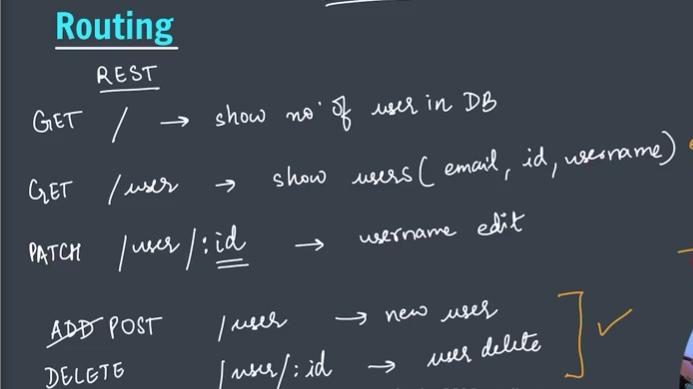 Routing
REST
GET / → show no. of user in DB
GET /user → show users( email, id, username)
PATCH /user/:id → username edit
ADD POST /user → new user
DELETE /user/:id → user delete